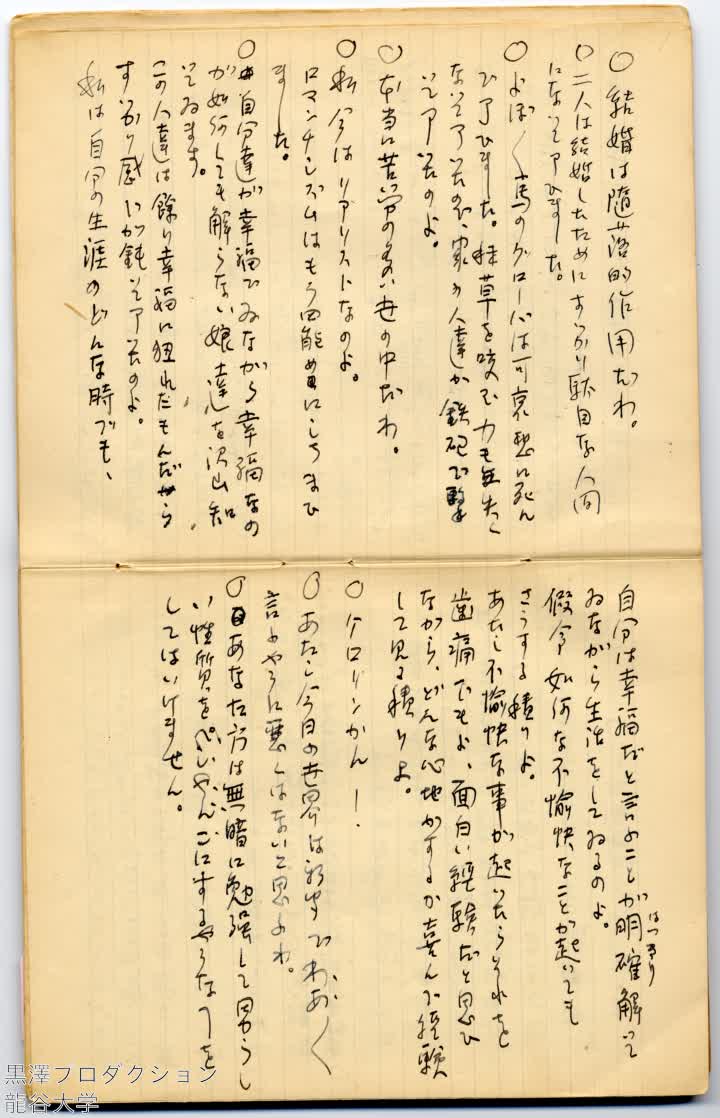 ○結婚は堕落的作用だわ。
○二人は結婚したためにすっかり駄目な人間
になってアひました。
○よぼ〱馬のグローバは可哀想に死ん
でアひました。秣草を咬む力も無失く
なってアったので、家の人達が鉄砲で撃
ってアったのよ。
○本当に苦労の多い世の中だわ。
○私今はリアリストなのよ。
ロマンチシズムはもう四能め口にしちまひ
ました。
○自分達が幸福でゐながら幸福なの
が如何しても解らない娘達を沢山知
ってゐます。
この人達は餘り幸福に狃れたもんだから
すっかり感じが鈍ってアったのよ。
私は自分の生涯のどんな時でも、
自分は幸福だと言ふことが明確解って
はっきり
ゐながら生活をしてゐるのよ。
假令如何な不愉快なことが起っても
さうする積りよ。
あたし不愉快な事が起ったらそれを
歯痛でもよ、面白い経験だと思ひ
ながら、どんな心地がするか喜んで経験
して見る積りよ。
○ケロリンかん！
○あたし今日の世界は
言ふやうに悪くはないと思ふわ。
○あなた方は無暗に勉強して男らし
い性質を
してはいけません。
黒澤プロダクション
龍谷大学